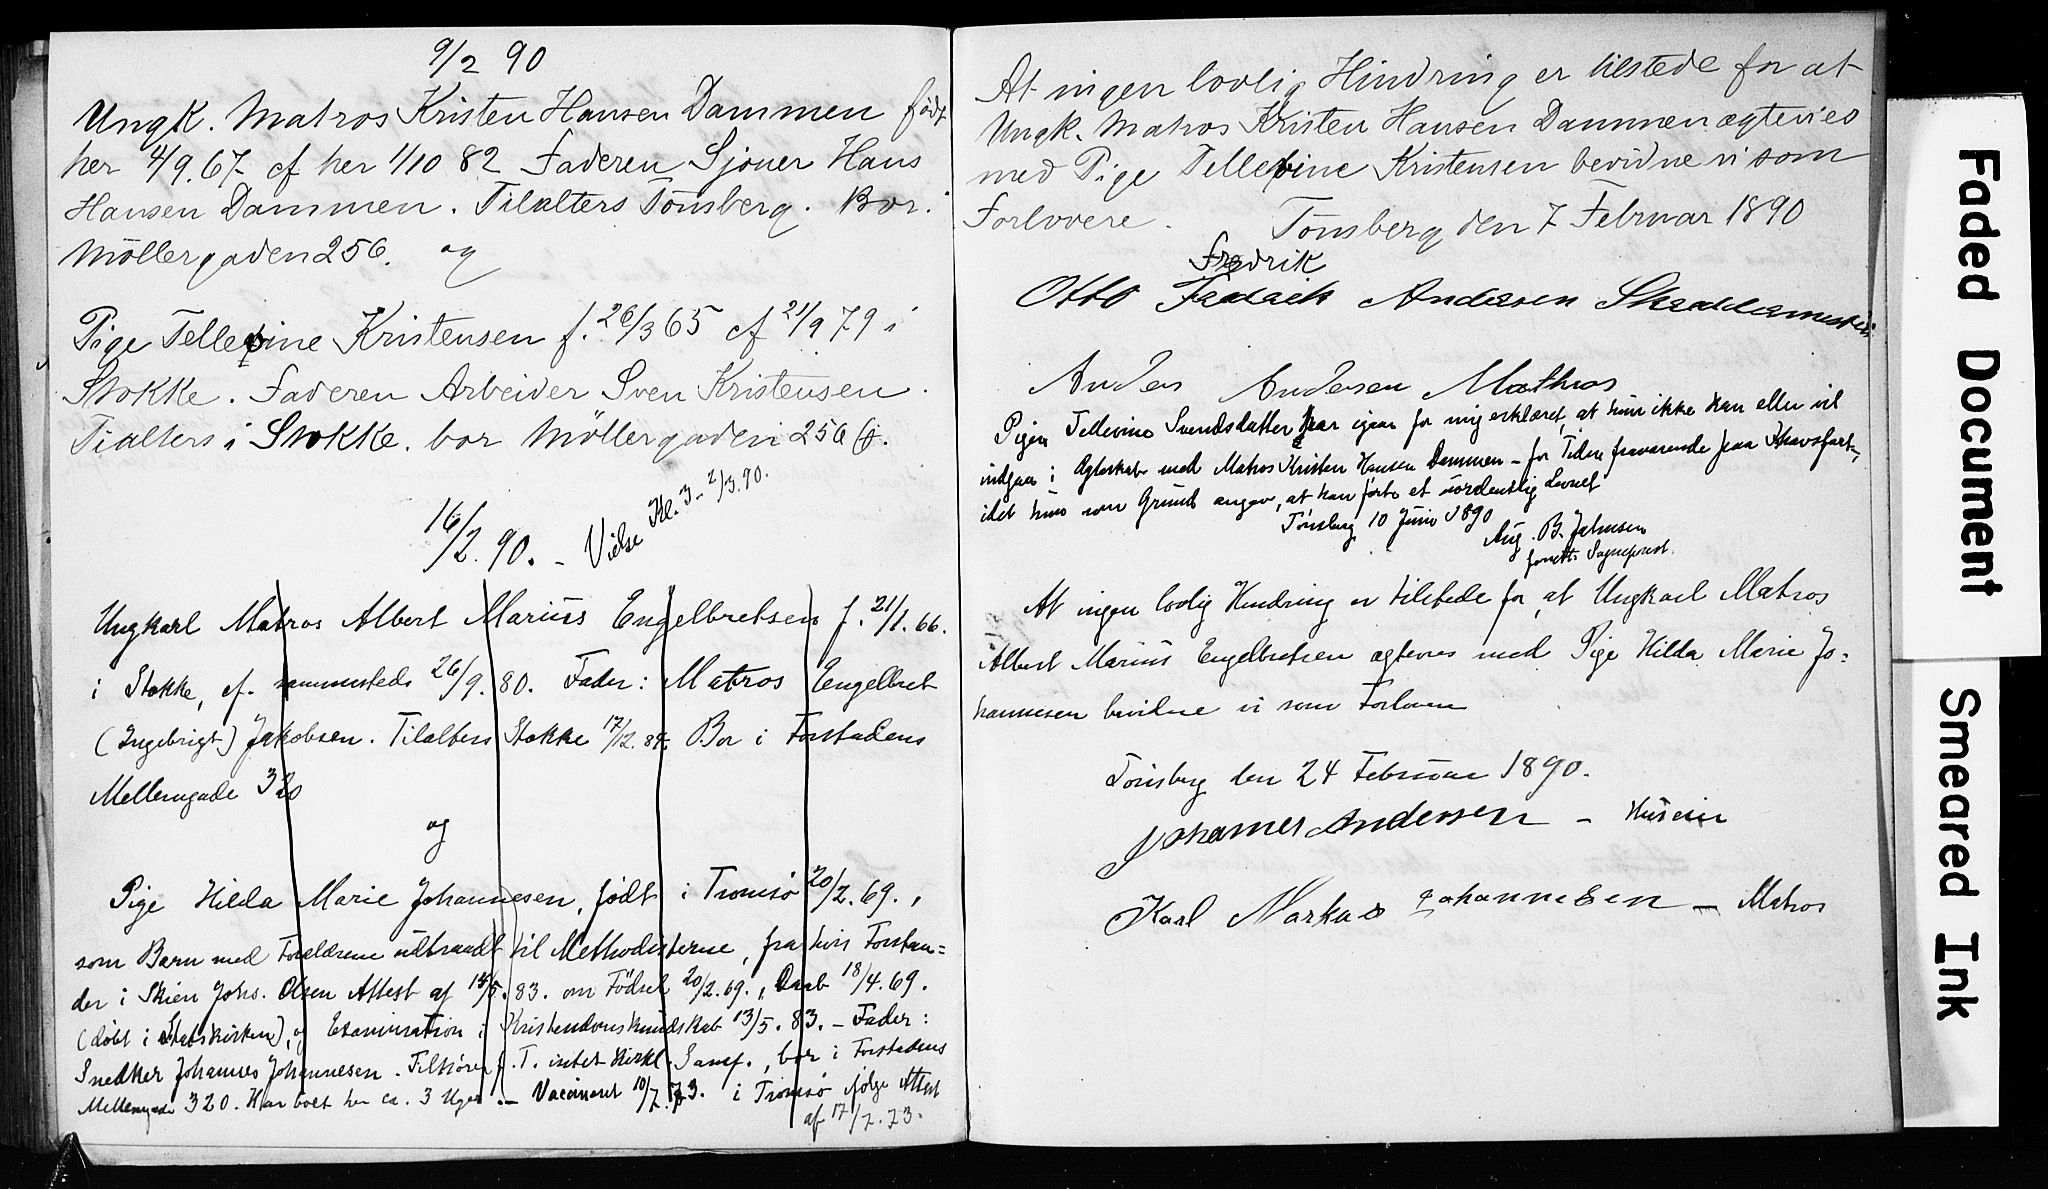 9/2 90
Ungk. Matros Kristen Hansen Dammen født
her 4/9.67. cf her 1/10 82 Faderen Sjöner Hans
Hansen Dammen. Tilalters Tönsberg. Bor i
Möllergaden 256. og
Pige Tellevine Kristensen f. 26/3 65 cf 21/9 79 i
Stokke. Faderen Arbeider Sven Kristensen.
Tialters i Stokke. bor Möllergaden 256
16/2.90. - Vielse Kl. 3 - 2/3.90.
Ungkarl Matros Albert Marius Engelbretsen f. 21/1.66.
i Stokke, cf. sammesteds 26/9.80. Fader: Matros Engelbret
(Ingebrigt) Jakobsen. Tilalters Stokke 17/12. 84. Bor i Forstadens
Mellemgade 320
og
Pige Hilda Marie Johannesen, født i Tromsø 20/2.69.,
som Barn med Forældrene udtraadt til Methodisterne, fra hvis Forstan=
der i Skien Johs. Olsen Attest af 15/5.83. om Födsel 20/2.69., Daab 18/4.69.
(døbt i Statskirken), og Examination i Kristendomskundskab 13/5.83. - Fader:
Snedker Johannes Johannesen. Tilhører f. T. intet Kirkl. Samf., bor i Forstadens
Mellemgade 320. Har boet her ca. 3 Uger. - Vaccineret 10/7.73. i Tromsø ifølge Attest
af 17/7.73.
At ingen lovlig Hindring er tilstede for at
Ungk. Matros Kristen Hansen Dammen ægtevies
med Pige Tellevine Kristensen bevidne vi som
Forlovere. Tönsberg den 7 Februar 1890
Fredrik
Otto Andersen Skreddermester
Anders Andersen Mathros
Pigen Tellevine Svendsdatter har igaar for mig erklæret, at hun ikke kan eller vil
indgaa i Ægteskab med Matros Kristen Hansen Dammen - for Tiden fraværende paa Ishavsfart -,
idet hun som Grund angav, at han førte et uordentlig Levnet
Tönsberg 10 Juni 1890
Aug. B. Johnsen
const. Sogneprest.
At ingen lovlig Hindring er tilstede for, at Ungkarl Matros
Albert Marius Engelbretsen ægtevies med Pige Hilda Marie Jo=
hannesen bevidne vi som Forlovere
Tönsberg den 24 Februar 1890.
Johannes Andersen - Huseier
Karl Markus Johannesen - Matros
Faded Document
Smeared Ink